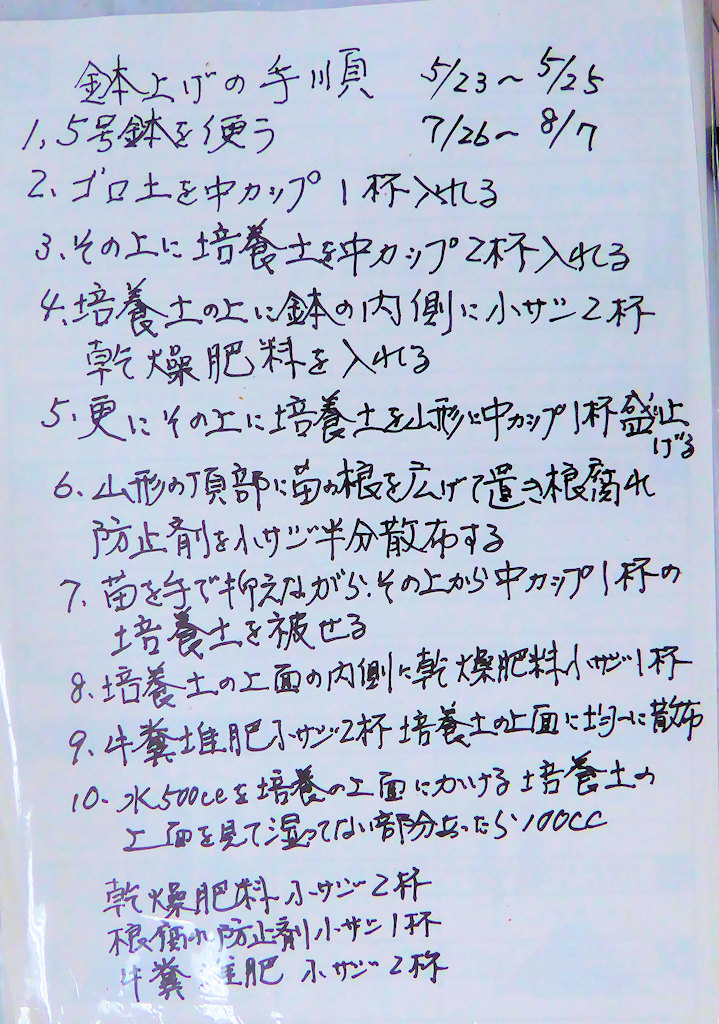 鉢上げの手順 5/23～5/25
1、5号鉢を使う 7/26～8/7
2、ゴロ土を中カップ1杯入れる
3、その上に培養土を中カップ2杯入れる
4、培養土の上に鉢の内側に小サジ2杯
乾燥肥料を入れる
5、更にその上に培養土を山形に中カップ1杯盛り上
げる
6、山形の頂部に苗の根を広げて置き根腐れ
防止剤を小サジ半分散布する
7、苗を手で抑えながら、その上から中カップ1杯の
培養土を被せる
8、培養土の上面の内側に乾燥肥料小サジ1杯
9、牛糞堆肥小サジ2杯培養土の上面に均一に散布
10、水500ccを培養の上面にかける培養土の
上面を見て湿ってない部分あったら100CC
乾燥肥料小サジ2杯
根腐れ防止剤小サジ1杯
牛糞堆肥 小サジ2杯